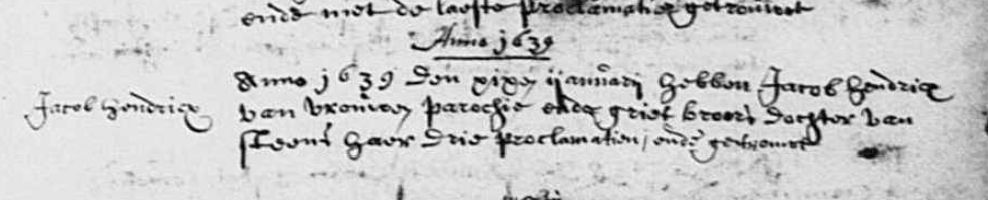 ende met de laeste proclamatien getrouwet
Anno 1639
Jacob Hendricx
Anno 1639 den xixen january hebben Jacob Hendricx
van vrouwen parochie ende griet broers dochter van
steens haer drie proclamatien, ende getrouwt